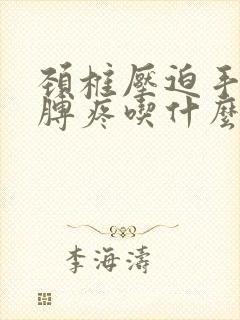 頸椎壓迫手
脾疼喫什麼
李海濤